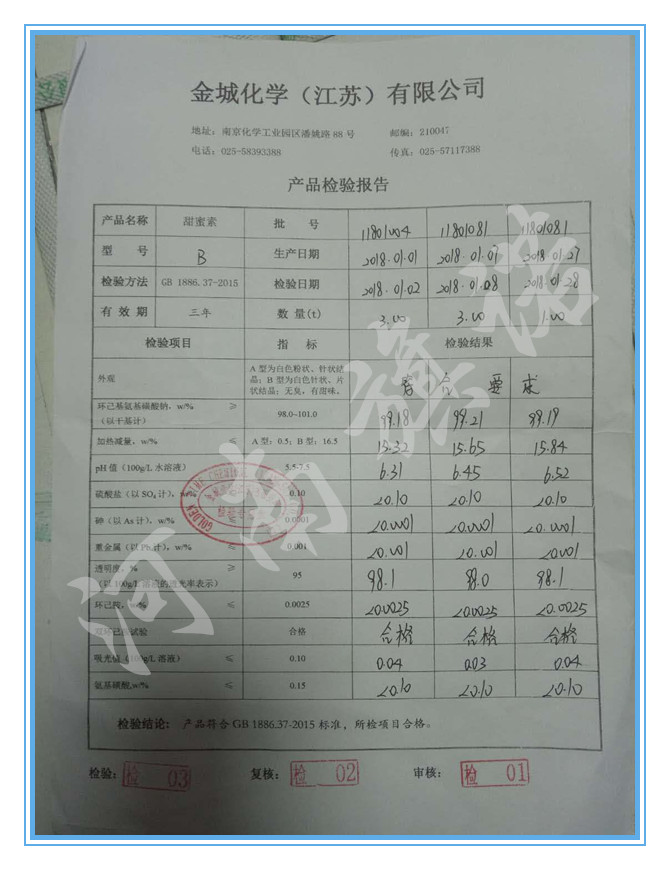 金城化学（江苏）有限公司
地址：南京化学工业园区潘姚路88号 邮编：210047
电话：025-58393388 传真：025-57117388
产品检验报告
产品名称 甜蜜素 批 号 11801004 11801081 11801081
型 号 B 生产日期 2018.01.01 2018.01.07 2018.01.27
检验方法 GB 1886.37-2015 检验日期 2018.01.02 2018.01.08 2018.01.28
有 效 期 三年 数 量(t) 3.00 3.00 1.00
检验项目 指 标 检验结果
外观 A型为白色粉状、针状结
晶；B型为白色针状、片
状结晶；无臭，有甜味。
符 合 要 求
环己基氨基磺酸钠，w/% ≥
（以干基计） 98.0~101.0 99.18 99.21 99.19
加热减量，w/% ≤ A型：0.5；B型：16.5 15.32 15.65 15.84
pH值（100g/L水溶液） 5.5-7.5 6.31 6.45 6.52
硫酸盐（以SO₄计），w/% 0.10 <0.10 <0.10 <0.10
砷（以As计），w/% 0.0001 <0.0001 <0.0001 <0.0001
重金属（以Pb计），w/% ≤ 0.001 <0.001 <0.001 <0.001
透明度，% ≥
（以100g/L溶液的透光率表示） 95 98.1 98.0 98.1
环己胺，w/% ≤ 0.0025 <0.0025 <0.0025 <0.0025
双环己胺试验 合格 合格 合格 合格
吸光值（100g/L溶液） ≤ 0.10 0.04 0.03 0.04
氨基磺酸,w/% ≤ 0.15 <0.10 <0.10 <0.10
检验结论： 产品符合GB 1886.37-2015标准，所检项目合格。
检验： 检 03 复核： 检 02 审核： 检 01
河南旗诺